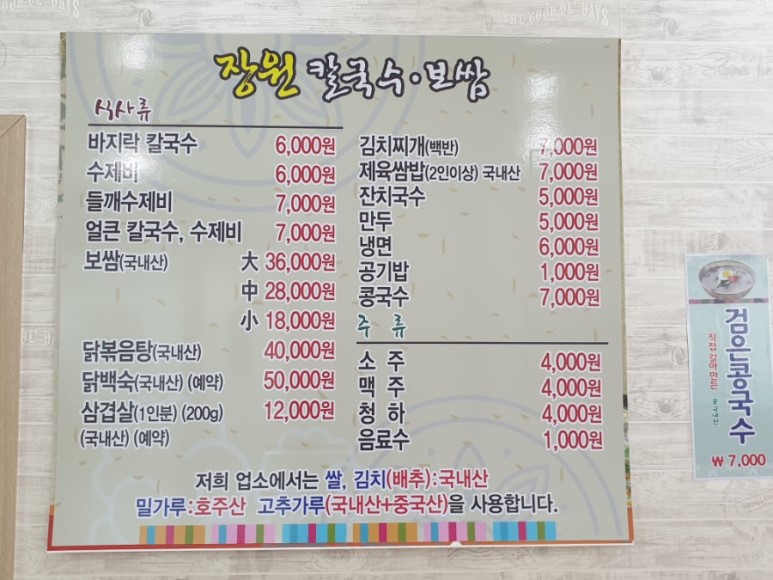 장원 칼국수·보쌈
식사류
바지락 칼국수 6,000원
수제비 6,000원
들깨수제비 7,000원
얼큰 칼국수, 수제비 7,000원
보쌈(국내산) 大 36,000원
中 28,000원
小 18,000원
닭볶음탕(국내산) 40,000원
닭백숙(국내산) (예약) 50,000원
삼겹살(1인분) (200g) 12,000원
(국내산) (예약)
김치찌개(백반) 7,000원
제육쌈밥(2인이상) 국내산 7,000원
잔치국수 5,000원
만두 5,000원
냉면 6,000원
공기밥 1,000원
콩국수 7,000원
주 류
소 주 4,000원
맥 주 4,000원
청 하 4,000원
음료수 1,000원
저희 업소에서는 쌀, 김치(배추):국내산
밀가루:호주산 고추가루(국내산+중국산)을 사용합니다.
검은콩국수
직접 갈아만든
₩ 7,000